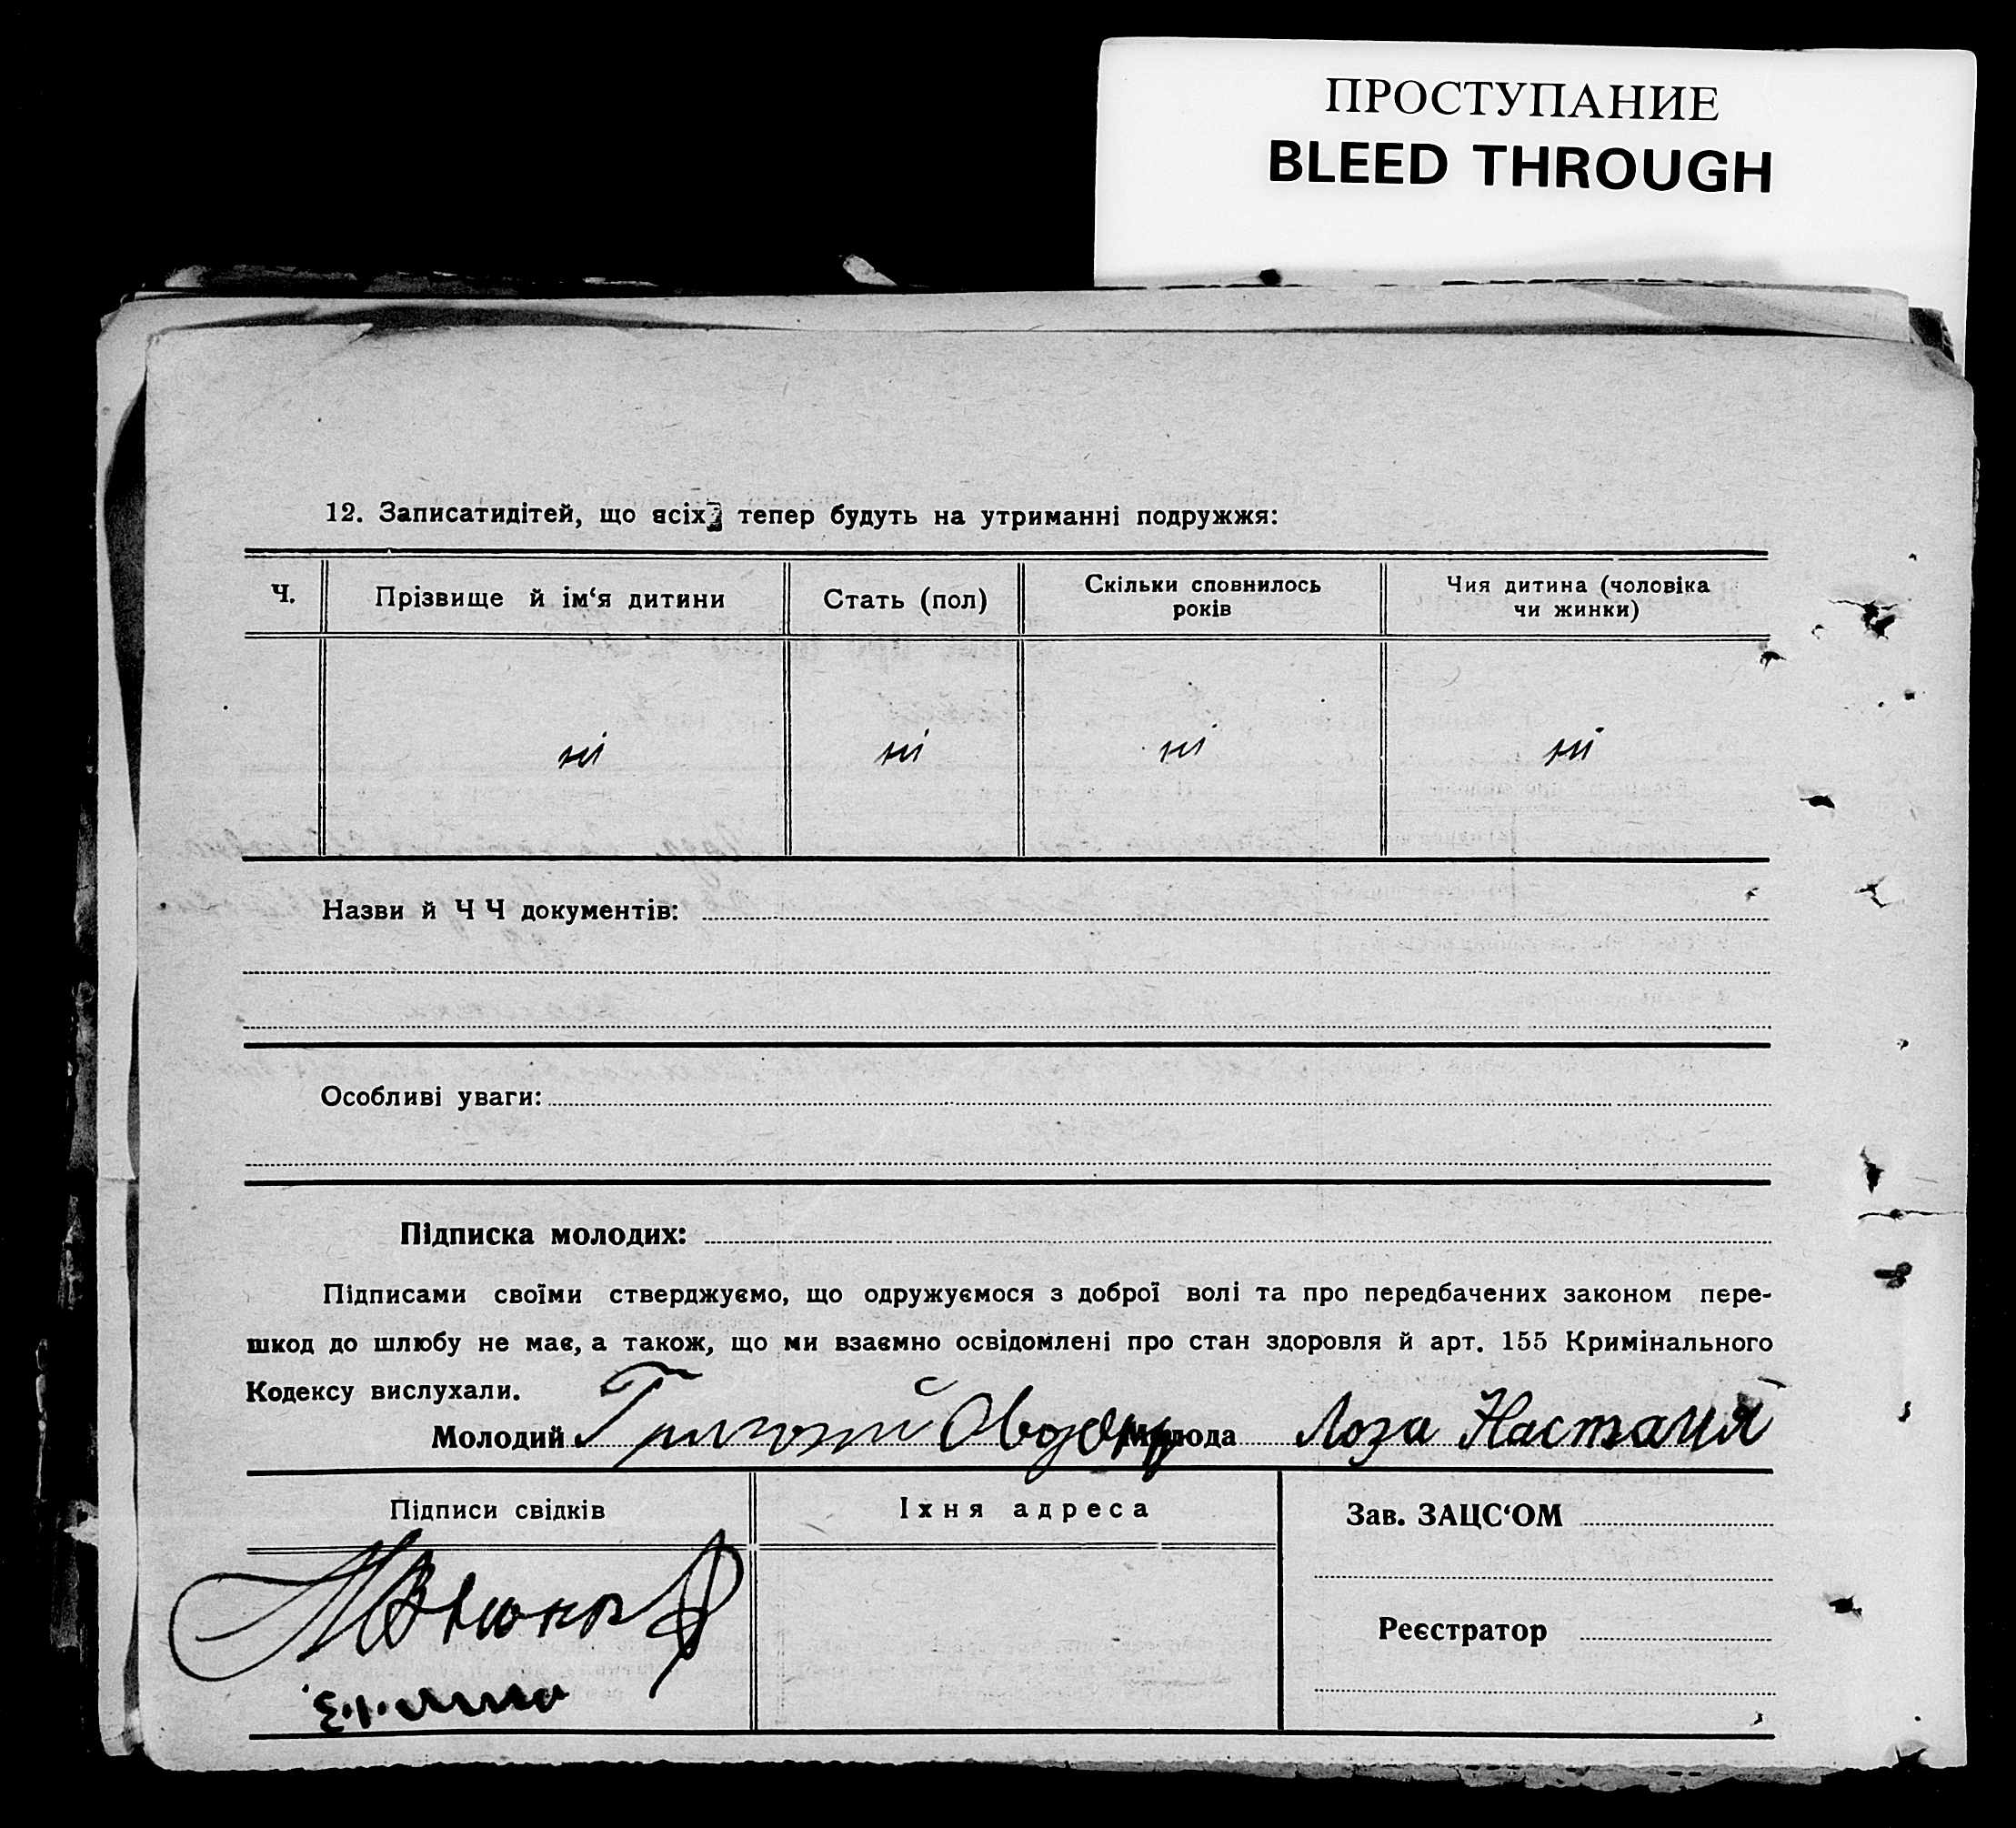 ПРОСТУПАНИЕ
BLEED THROUGH
12. Записатидітей, що всіх тепер будуть на утриманні подружжя:
Ч. Прізвище й ім‘я дитини Стать (пол) Скільки сповнилось років Чия дитина (чоловіка чи жинки)
ні ні ні ні
Назви й Ч Ч документів:
Особливі уваги:
Підписка молодих:
Підписами своїми стверджуємо, що одружуємося з доброї волі та про передбачених законом пере-
шкод до шлюбу не має, а також, що ми взаємно освідомлені про стан здоровля й арт. 155 Кримінального
Кодексу вислухали.
Молодий Молода Лоза Настация
Підписи свідків Іхня адреса Зав. ЗАЦС‘ОМ
Реєстратор